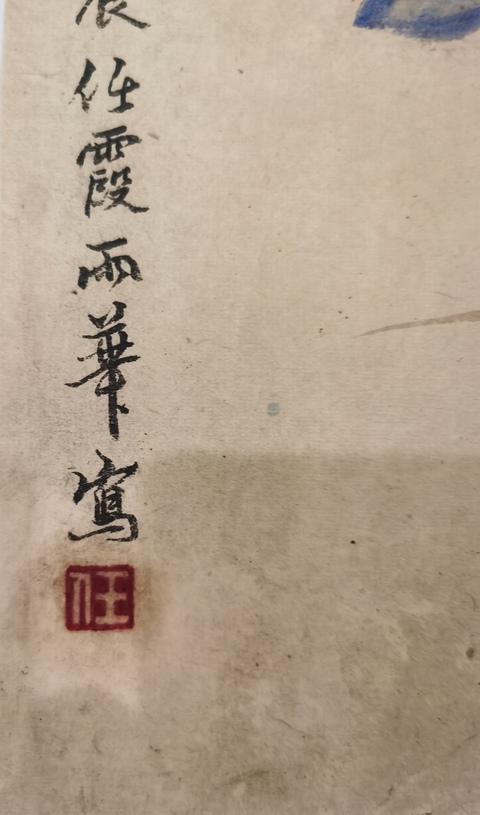 辰任霞雨華寫
任